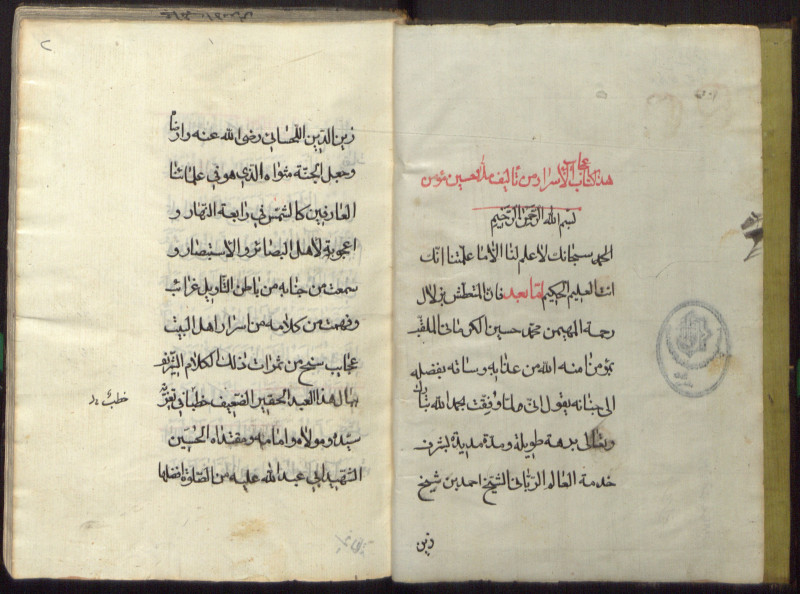 هذا کتاب الاسرار من تألیف ملا حسین مؤمن
بسم الله الرحمن الرحیم
الحمد سبحانك لا علم لنا الا ما علمتنا انك
انت العلیم الحکیم اما بعد فان المتعطش بزلال
رحمة المهیمن محمد حسین الکرمانی الملقب
بمؤمن امنه الله من عذابه وساقه بفضله
الی جنانه یقول انی لما وفقت بحمد الله تبارك
وتعالی برهة طویلة ومدة مدیدة بشرف
خدمة العالم الربانی الشیخ احمد بن شیخ
زین
۲
زین الدین اللحسائی رضی الله عنه وارضا
وجعل الجنة مثواه الذی هو فی علمائنا
العارفین کالشمس فی رابعة النهار و
اعجوبة لاهل البصائر والاستبصار و
سمعت من جنابه من باطن التاویل غرائب
وفهمت من کلامه من اسرار اهل البیت
عجایب سنح من ثمرات ذلك الکلام الشریف
ببال هذا العبد الحقیر الضعیف خطبا فی تعزیة
سیده ومولاه وامامه ومقتداه الحسین
الشهید ابی عبد الله علیه من الصلوة افضلها